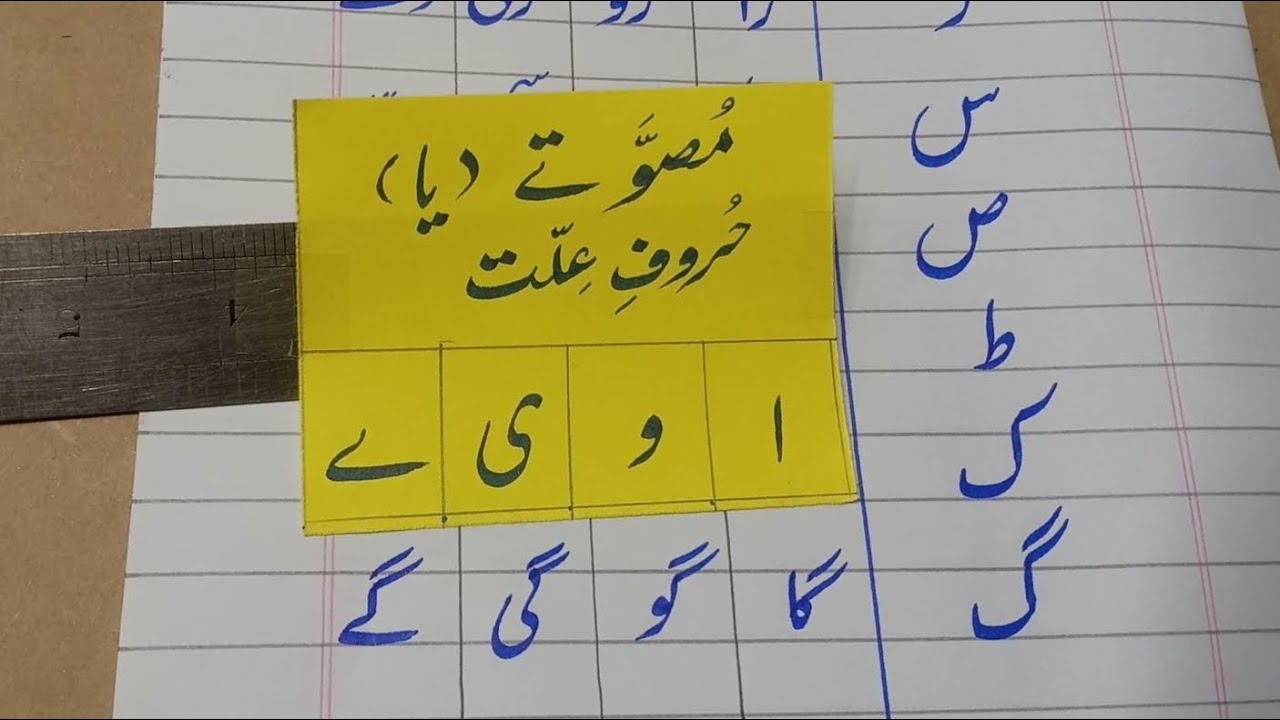 س
مُصوَّتے (یا)
حُروفِ عِلّت
ص
ط
ا و ی ے
ک
گ گا گو گی گے